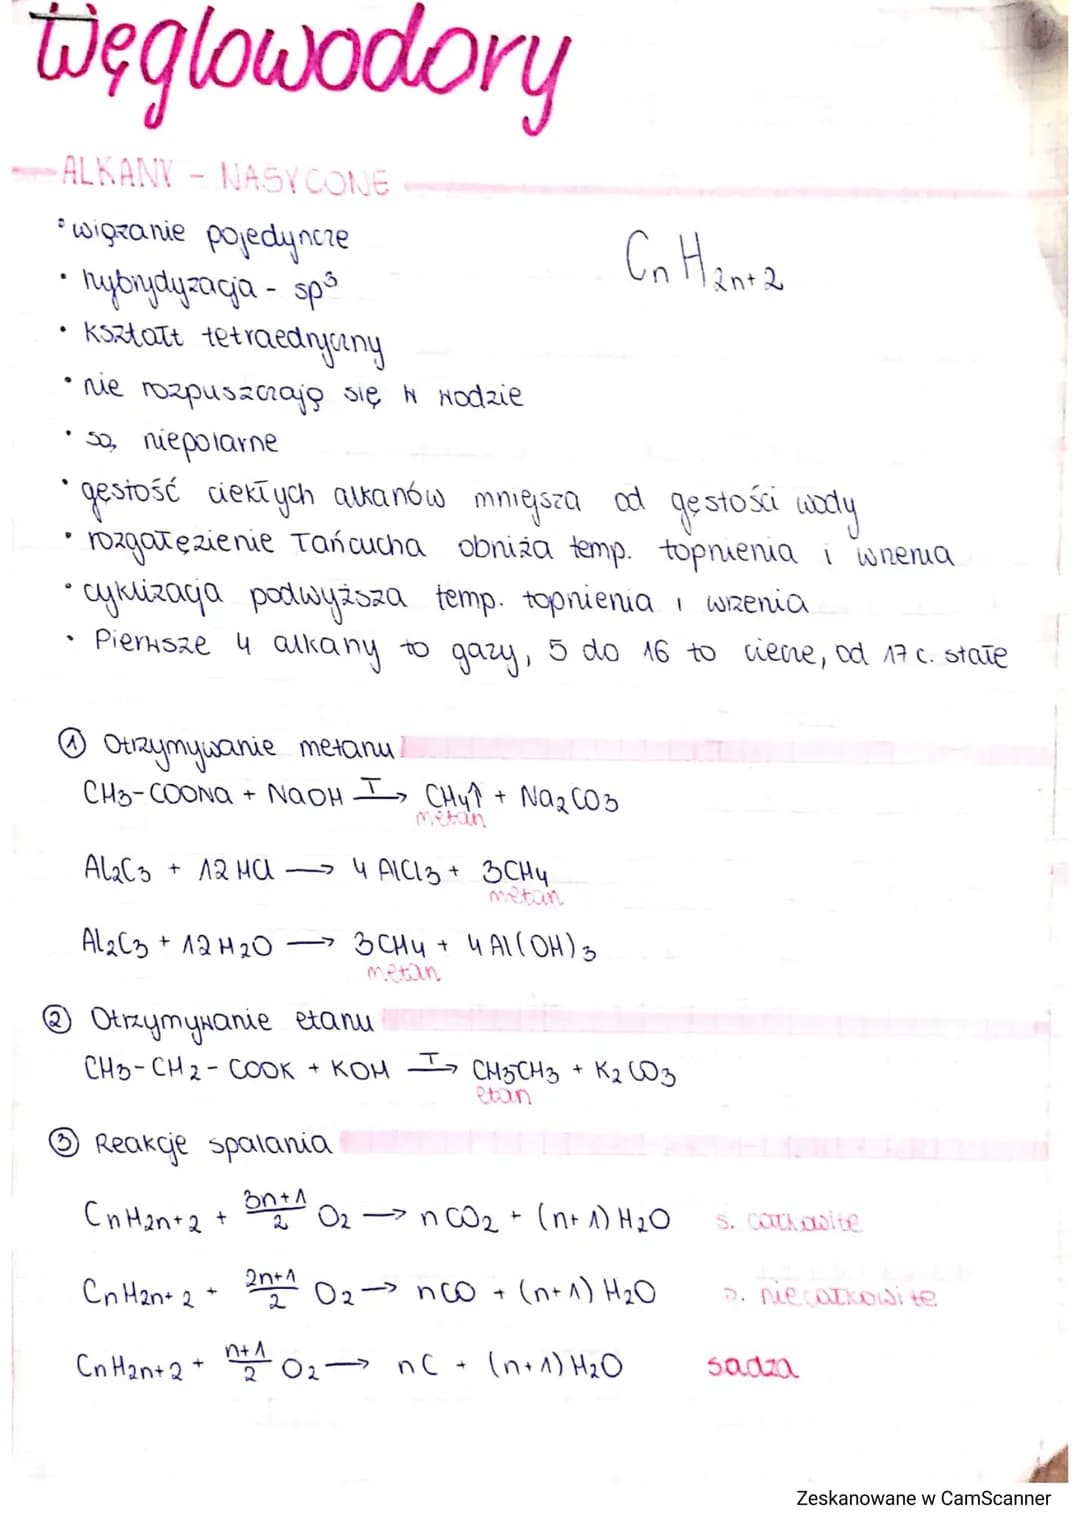 Węglowodory
ALKANY - NASYCONE
• wiązanie pojedyncze
CnH2n+2
• hybrydyzacja - sp³
• kształt tetraedryczny
• nie rozpuszczają się w wodzie
• są niepolarne
• gęstość ciekłych alkanów mniejsza od gęstości wody
• rozgałęzienie łańcucha obniża temp. topnienia i wrzenia
• cyklizacja podwyższa temp. topnienia i wrzenia
• Pierwsze 4 alkany to gazy, 5 do 16 to ciecze, od 17 c. stałe
① Otrzymywanie metanu
CH3-COONa + NaOH T→ CH4↑ + Na2CO3
metan
Al2C3 + 12 HCl → 4 AlCl3 + 3CH4
metan
Al2C3 + 12 H2O → 3CH4 + 4Al(OH)3
metan
② Otrzymywanie etanu
CH3-CH2-COOK + KOH T→ CH3CH3 + K2CO3
etan
③ Reakcje spalania
CnH2n+2 + 3n+1/2 O2 → nCO2 + (n+1)H2O s. całkowite
CnH2n+2 + 2n+1/2 O2 → nCO + (n+1)H2O s. niecałkowite
CnH2n+2 + n+1/2 O2 → nC + (n+1)H2O sadza
Zeskanowane w CamScanner